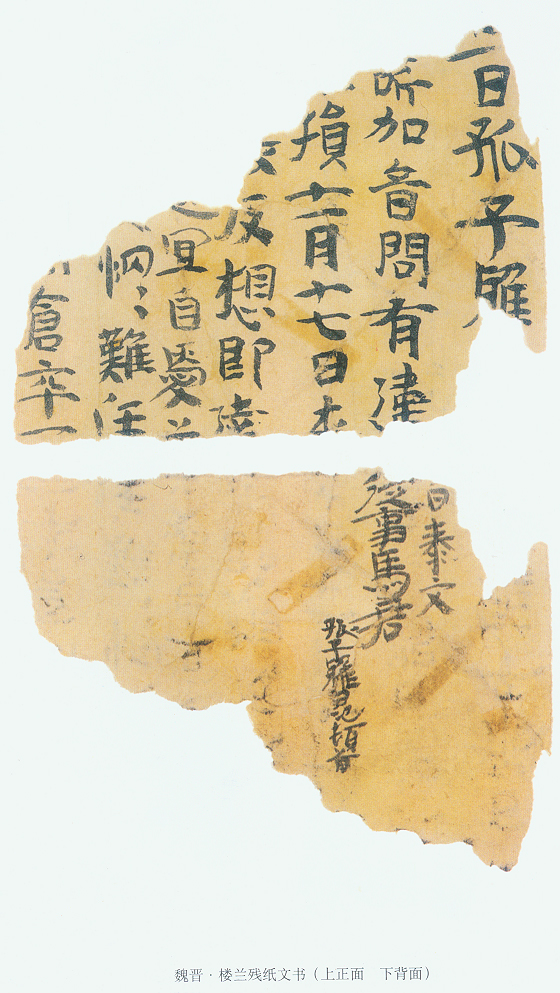 日孤子
所加音問有
十一月十七日
想即
宜自愛
惘〻難
倉卒一
日泰文
從事馬君
孤子羅 頓首
魏晋·楼兰残纸文书（上正面　下背面）